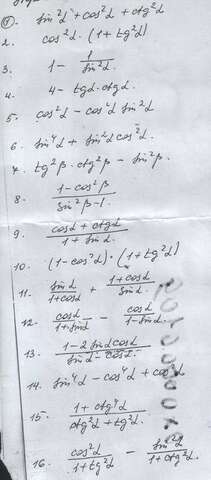 1. sin²α + cos²α + ctg²α
2. cos²α · (1 + tg²α)
3. 1 - 1/sin²α
4. 4 - tgα · ctgα
5. cos²α - cos²α sin²α
6. sin⁴α + sin²α cos²α
7. tg²β · ctg²β - sin²β.
8. (1 - cos²β)/(sin²β - 1)
9. (cosα + ctgα)/(1 + sinα)
10. (1 - cos²α) · (1 + tg²α)
11. sinα/(1 + cosα) + (1 + cosα)/sinα
12. cosα/(1 + sinα) - cosα/(1 - sinα)
13. (1 - 2 sinα cosα)/(sinα - cosα)
14. sin⁴α - cos⁴α + cos²α
15. (1 + ctg⁴α)/(ctg²α + tg²α)
16. cos²α/(1 + tg²α) - sin²α/(1 + ctg²α)